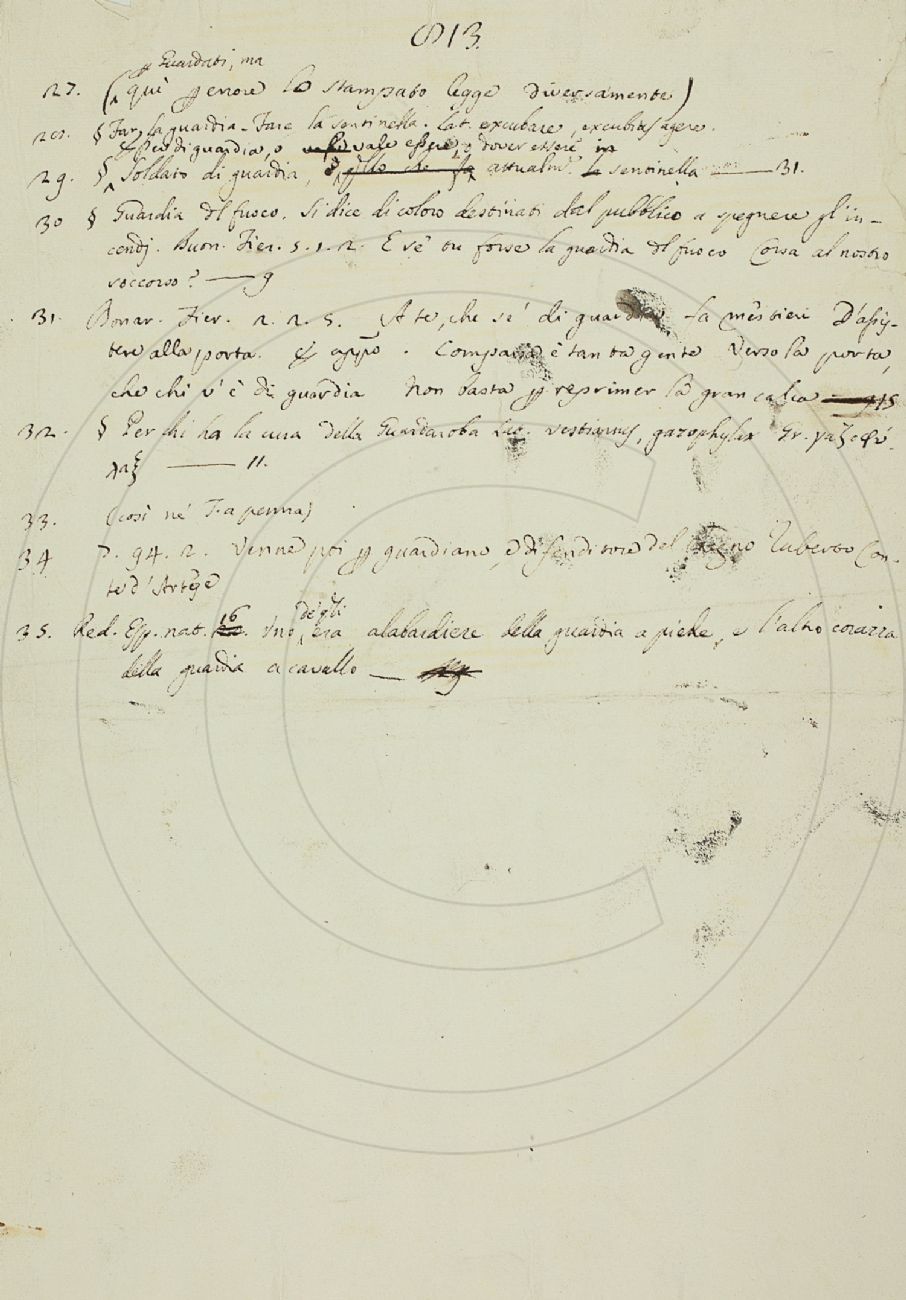 813.
Guardati, ma
27. (qui ꝑ errore lo stampato legge diversamente)
28. § Far la guardia. Fare la sentinella. Lat. excubare, excubias agere.
Esser di guardia, o vale essere, o dover essere in
29. § Soldato di guardia, quello che fa attualm.e la sentinella —— 31.
30 § Guardia del fuoco. Si dice di coloro destinati dal pubblico a spegnere gl'in-
cendj. Buon. Fier. 5. 1. 2. E se' tu forse la guardia del fuoco Corsa al nostro
soccorso? —— 9
31. Bonar. Fier. 2. 2. 5. A te, che se' di guardia fa mestieri D'assis-
tere alla porta. E app.o. Comparsa è tanta gente Verso la porta,
che chi v'è di guardia Non basta ꝑ reprimer la gran calca —— 15
32. § Per chi ha la cura della Guardaroba Lat. vestiarius, gazophylax Gr. γαζοφύ-
λαξ —— 11.
33. (così ne' T. a penna)
34 D. 94. 2. Venne poi ꝑ guardiano, e difenditore del Regno Ruberto Con-
te d'Artese
degli
35. Red. Esp. nat. 16 Uno era alabardiere della guardia a piede, e l'altro corazza
della guardia a cavallo —